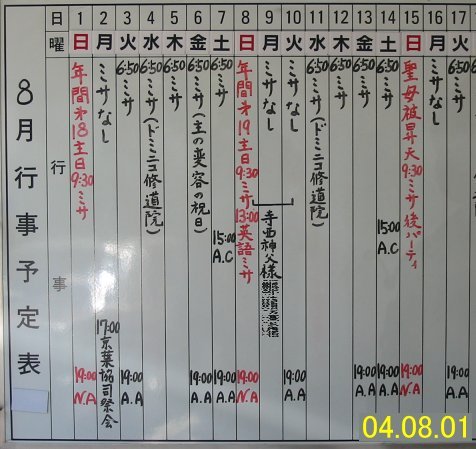 8月行事予定表
日 曜 行 事
1 日 年間第18主日 9:30 ミサ 19:00 N.A
2 月 ミサなし 17:00 京葉協司祭会
3 火 6:50 ミサ 19:00 A.A
4 水 6:50 ミサ(ドミニコ修道院)
5 木 6:50 ミサ
6 金 6:50 ミサ(主の変容の祝日) 19:00 A.A
7 土 6:50 ミサ 15:00 A.C 19:00 A.A
8 日 年間第19主日 9:30 ミサ 13:00 英語ミサ 19:00 N.A
9 月 ミサなし 寺西神父様
10 火 ミサなし 19:00 A.A
11 水 6:50 ミサ(ドミニコ修道院)
12 木 6:50 ミサ
13 金 6:50 ミサ 19:00 A.A
14 土 6:50 ミサ 15:00 A.C 19:00 A.A
15 日 聖母被昇天 9:30 ミサ後パーティ 19:00 N.A
16 月 ミサなし
17 火 6:50 ミサ 19:00 A.A
04.08.01